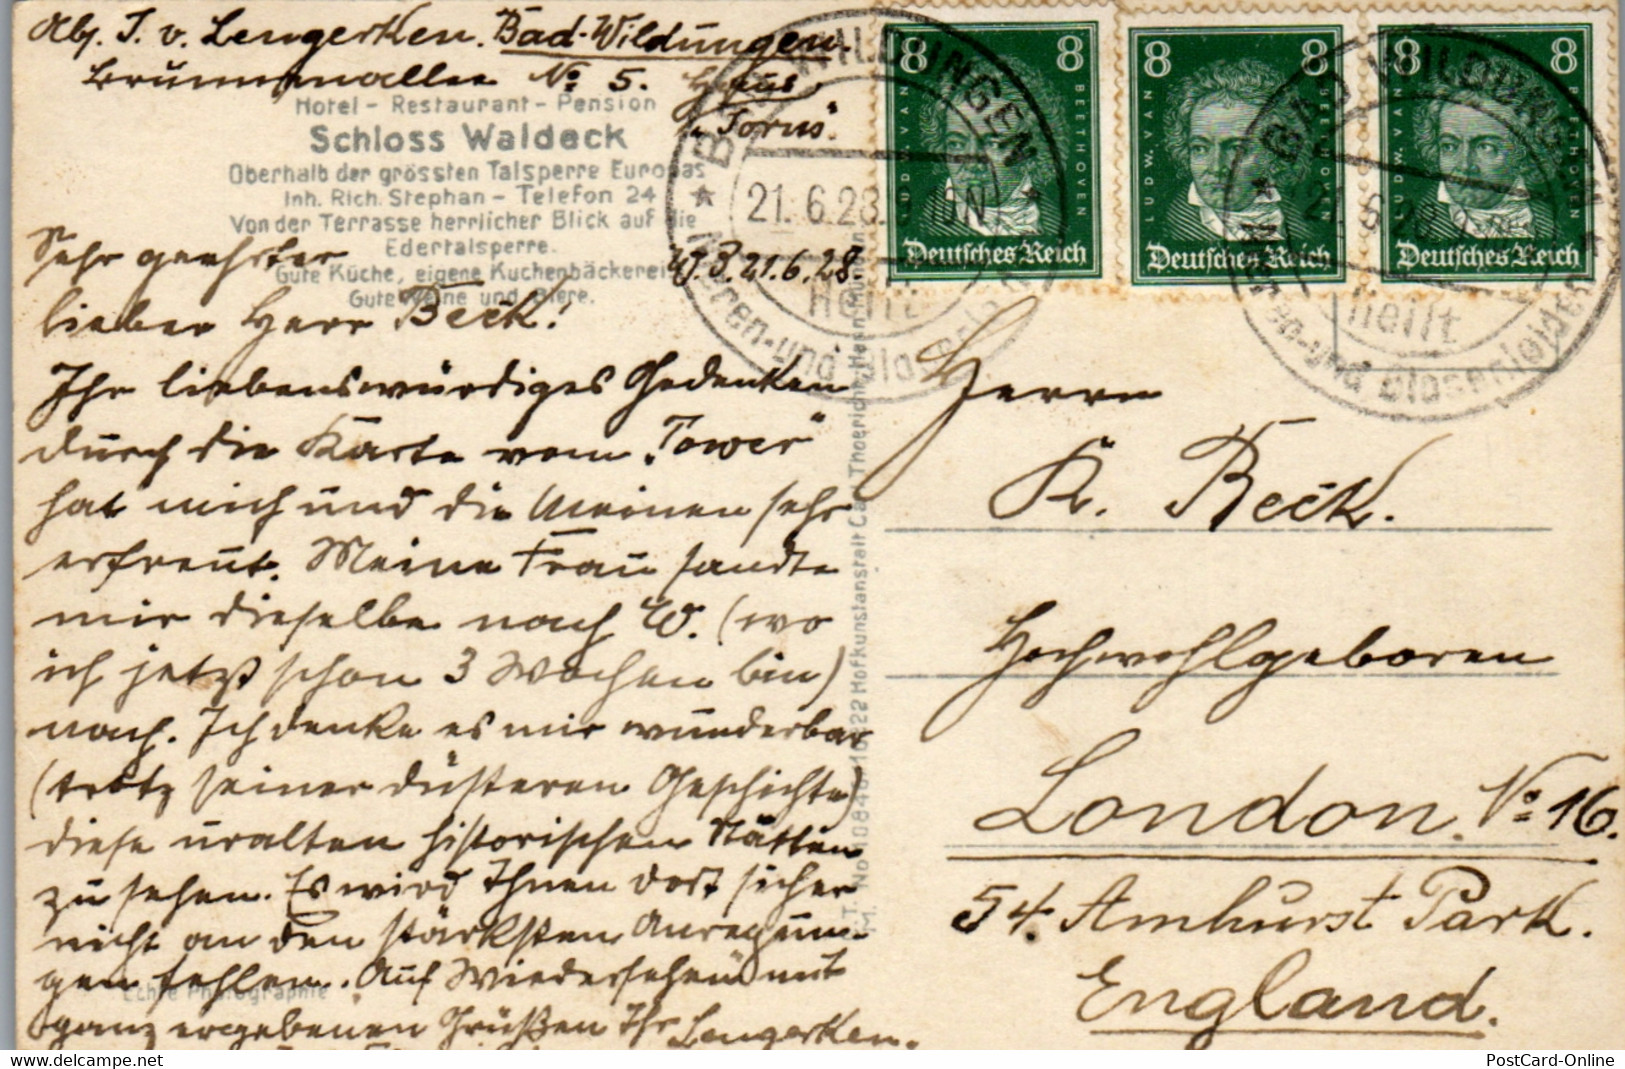 Abs. J. v. Lengerken. Bad-Wildungen.
Brunnenallee No. 5. Haus
"Forus".
Hotel - Restaurant - Pension
Schloss Waldeck
Oberhalb der grössten Talsperre Europas
Inh. Rich. Stephan - Telefon 24
Von der Terrasse herrlicher Blick auf die
Edertalsperre.
Gute Küche, eigene Kuchenbäckerei
Gute Weine und Biere.
21.6.28.
Sehr geehrter
lieber Herr Beck!
Ihr liebenswürdiges Gedenken
durch die Karte vom „Tower"
hat mich und die Meinen sehr
erfreut. Meine Frau sandte
mir dieselbe nach W. (wo
ich jetzt schon 3 Wochen bin)
nach. Ich denke es mir wunderbar
(trotz seiner düsteren Geschichte)
diese uralten historischen Stätten
zu sehen. Es wird Ihnen dort sicher
nicht an den stärksten Anregun-
gen fehlen. Auf Wiedersehen mit
ganz ergebenen Grüßen Ihr Lengerken.
Echte Photographie
Hofkunstanstalt Carl Thoericht, Hann. Münden
BAD WILDUNGEN
21.6.28.
heilt
Nieren- und Blasenleiden
8 8
LUDW. VAN BEETHOVEN
Deutsches Reich
8 8
LUDW. VAN BEETHOVEN
Deutsches Reich
8 8
LUDW. VAN BEETHOVEN
Deutsches Reich
BAD WILDUNGEN
21.6.28
heilt
Nieren- und Blasenleiden
Herrn
K. Beck.
Hochwohlgeboren
London. No 16.
54. Amhurst Park.
England.
delcampe.net
PostCard-Online